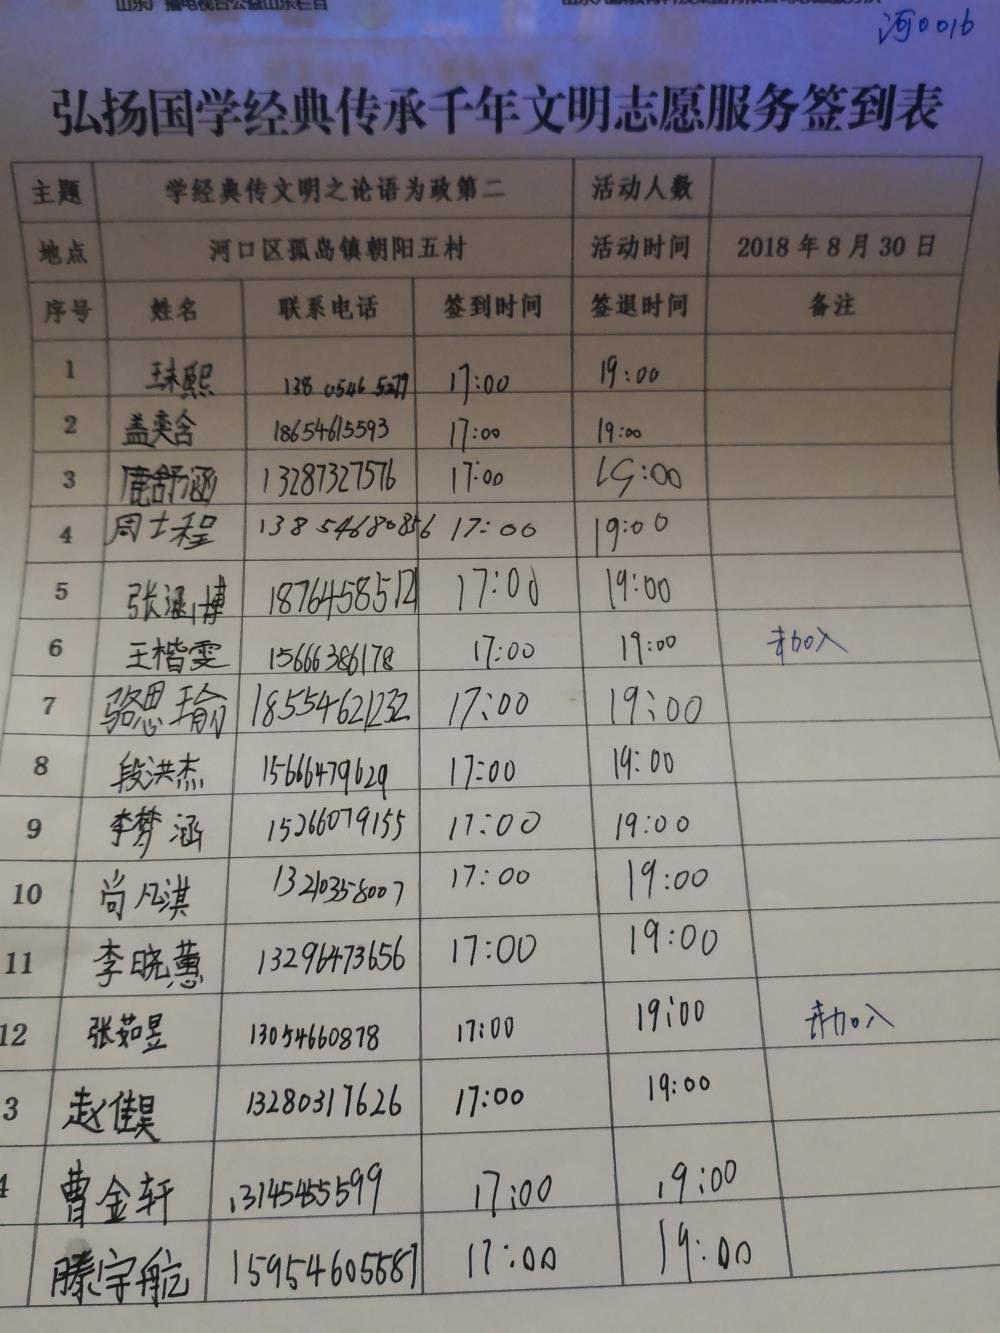 山东广播电视台公益山东栏目
河0016
弘扬国学经典传承千年文明志愿服务签到表
主题 学经典传文明之论语为政第二 活动人数
地点 河口区孤岛镇朝阳五村 活动时间 2018年8月30日
序号 姓名 联系电话 签到时间 签退时间 备注
1 138 0546 5279 17:00 19:00
2 盖奕含 18654615593 17:00 19:00
3 鹿舒涵 13287327576 17:00 19:00
4 周士程 13854680856 17:00 19:00
5 张涵博 18764585121 17:00 19:00
6 王楷雯 15666386178 17:00 19:00 未加入
7 骆思瑜 18554621232 17:00 19:00
8 段洪杰 15666479629 17:00 19:00
9 李梦涵 15266079155 17:00 19:00
10 尚凡淇 13210358007 17:00 19:00
11 李晓蕙 13296473656 17:00 19:00
12 张茹昱 13054660878 17:00 19:00 未加入
3 赵佳昊 13280317626 17:00 19:00
4 曹金轩 13145455599 17:00 19:00
滕宇航 15954605587 17:00 19:00